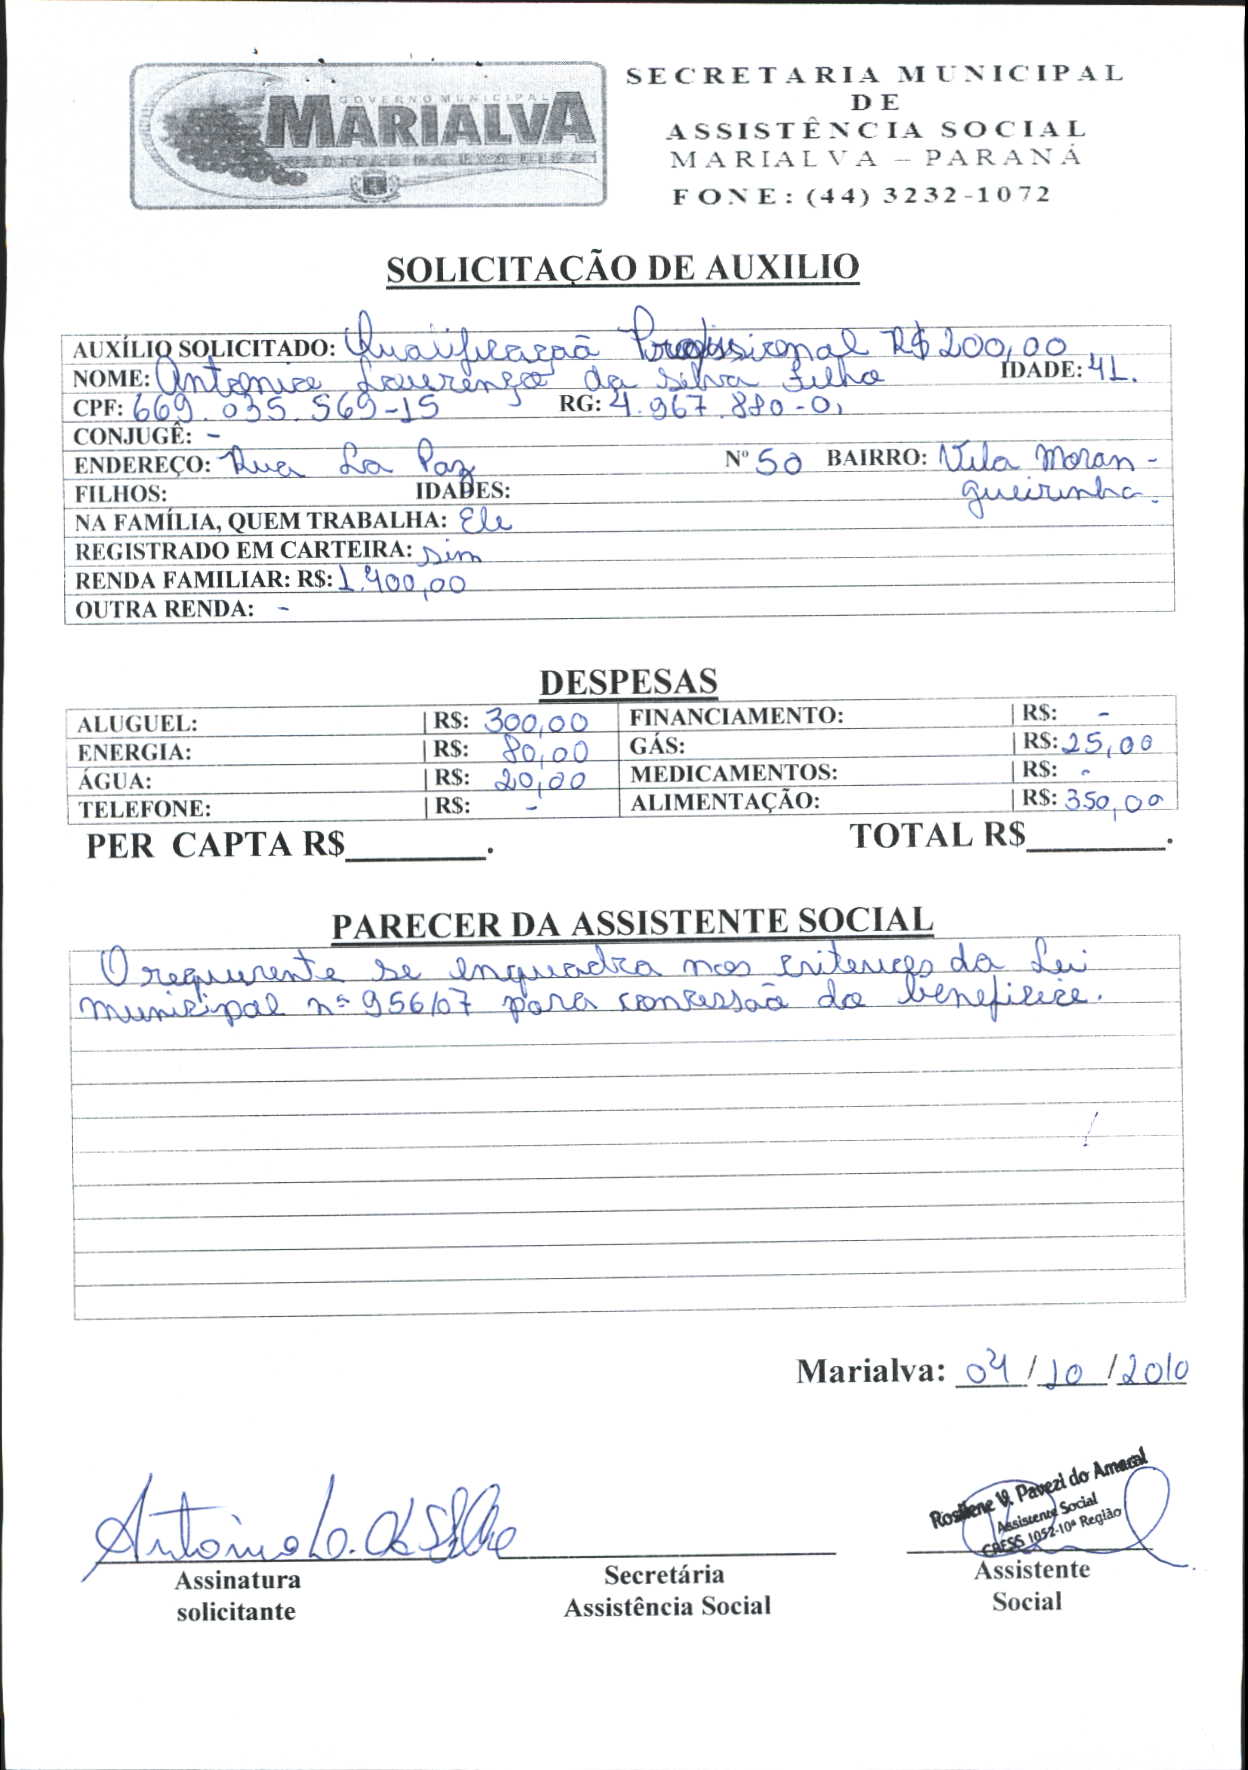 GOVERNO MUNICIPAL
MARIALVA
SECRETARIA MUNICIPAL
DE
ASSISTÊNCIA SOCIAL
MARIALVA – PARANÁ
FONE: (44) 3232-1072
SOLICITAÇÃO DE AUXILIO
AUXÍLIO SOLICITADO: Qualificação Profissional R$ 200,00
NOME: Antonio Lourenço da Silva Filho IDADE: 41.
CPF: 669.035.569-15 RG: 4.967.880-0,
CONJUGÊ: -
ENDEREÇO: Rua La Paz Nº 50 BAIRRO: Vila Moran-
FILHOS: IDADES: gueirinha.
NA FAMÍLIA, QUEM TRABALHA: Ele
REGISTRADO EM CARTEIRA: sim
RENDA FAMILIAR: R$: 1.400,00
OUTRA RENDA: -
DESPESAS
ALUGUEL: R$: 300,00 FINANCIAMENTO: R$: -
ENERGIA: R$: 80,00 GÁS: R$: 25,00
ÁGUA: R$: 20,00 MEDICAMENTOS: R$: -
TELEFONE: R$: - ALIMENTAÇÃO: R$: 350,00
PER CAPTA R$________. TOTAL R$________.
PARECER DA ASSISTENTE SOCIAL
O requerente se enquadra nos criterios da Lei
municipal nº 956/07 para concessão do beneficio.
Marialva: 04/10/2010
Rosilene V. Pavezi do Amaral
Assistente Social
CRESS 1052-10ª Região
Antonio L. da S. Filho
Assinatura Secretária Assistente
solicitante Assistência Social Social